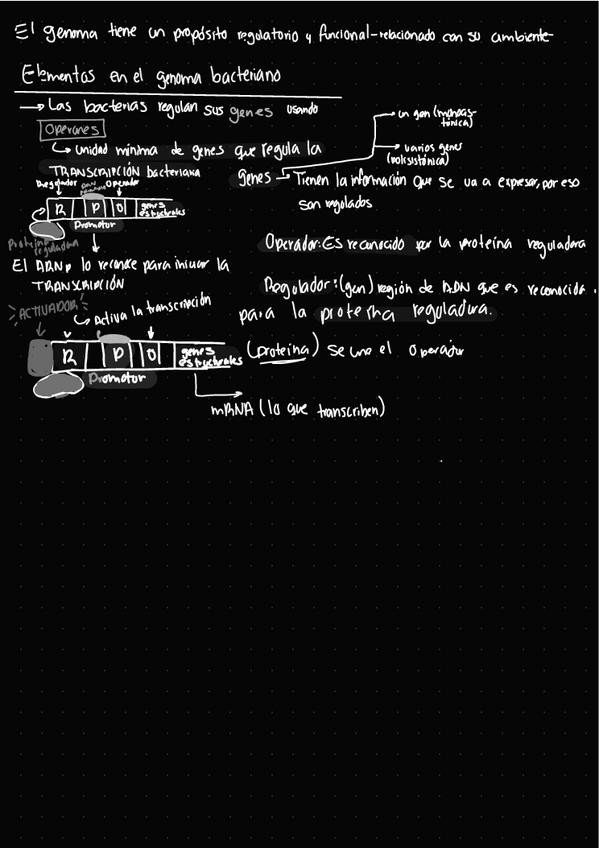 El genoma tiene un propósito regulatorio y funcional-relacionado con su ambiente
Elementos en el genoma bacteriano
→ Las bacterias regulan sus genes usando
Operones
↳ unidad mínima de genes que regula la
TRANSCRIPCIÓN bacteriana
→ un gen (monocis-
tónica)
→ varios genes
genes → Tienen la información que se va a expresar, por eso
son regulados
Regulador Operador
R P O genes
estructurales
Promotor
Proteína
reguladora
El ARNp lo reconoce para iniciar la
TRANSCRIPCIÓN
Operador: Es reconocido por la proteína reguladora
Regulador: (gen) región de ADN que es reconocida
para la proteína reguladora.
(proteína) se une el operador
ACTIVADOR
↳ Activa la transcripción
R P O genes
estructurales
Promotor
mRNA (lo que transcriben)